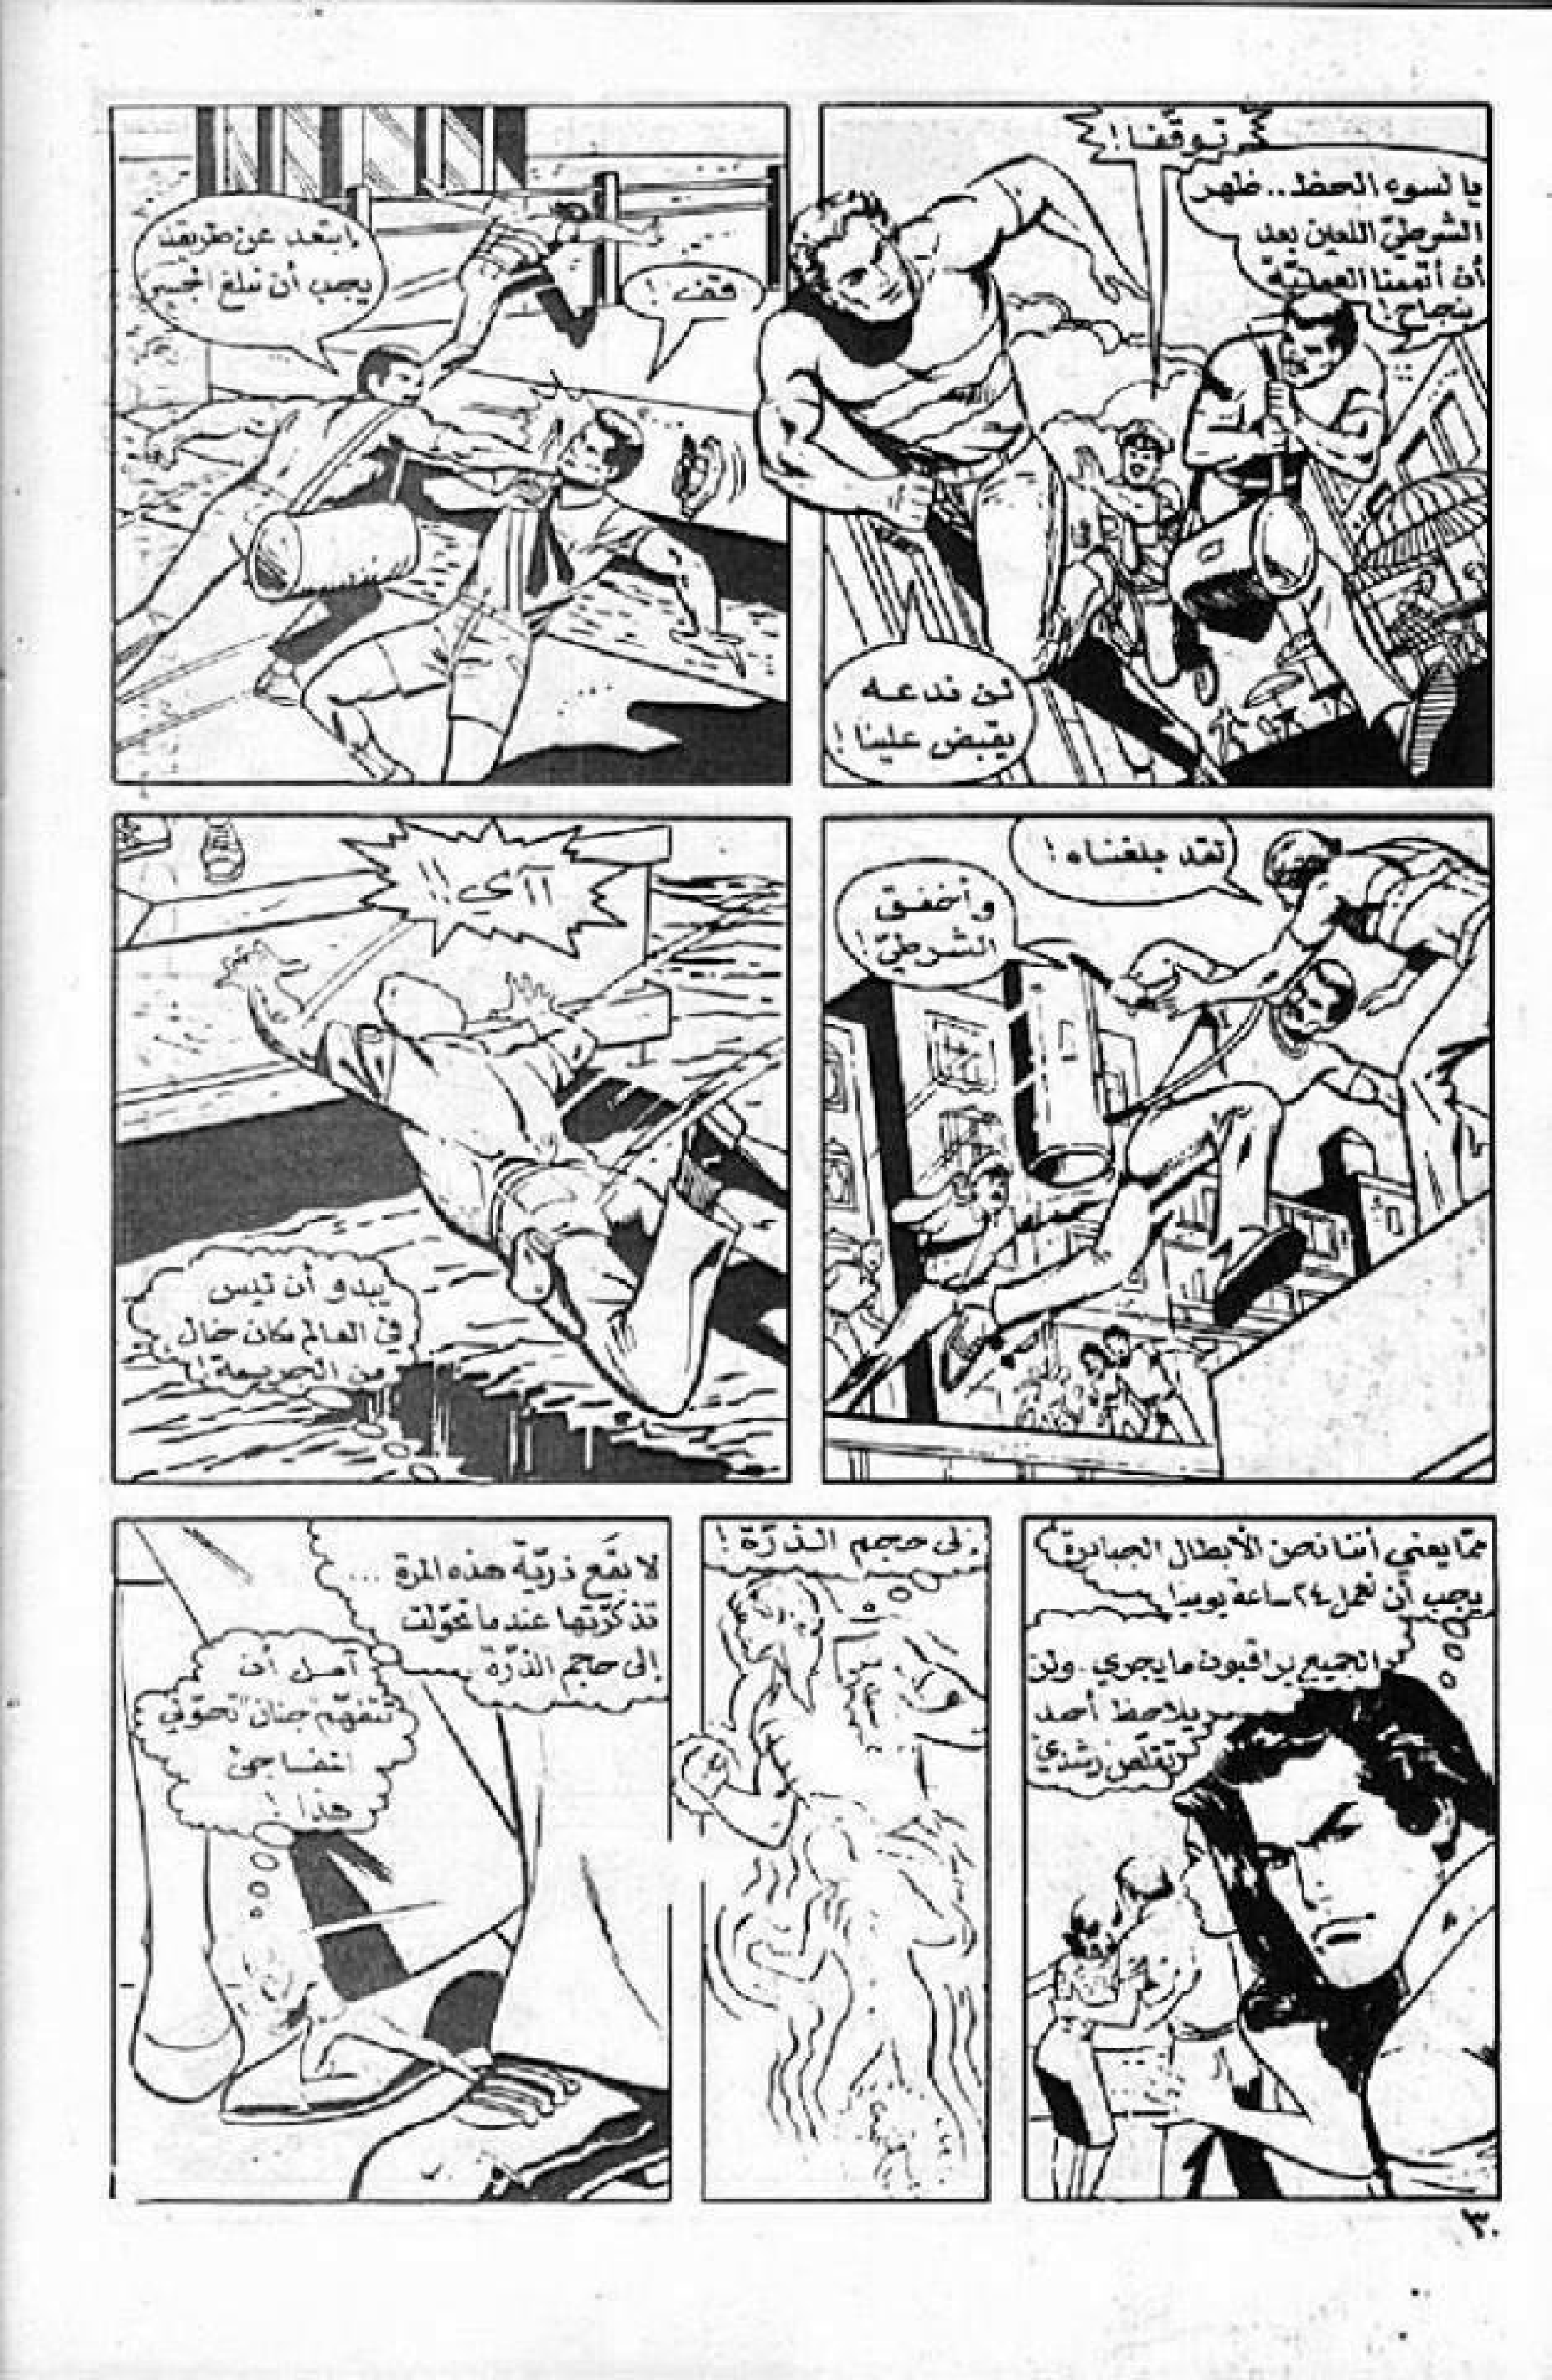 توقّفا!
يا لسوء الحظ.. ظهر
الشرطيّ اللعين بعد
أن أتممنا العمليّة
بنجاح!
لن ندعه
يقبض علينا!
قف!
إبتعد عن طريقنا
يجب أن نبلغ الجسر
لقد بلغناه!
وأخفق
الشرطيّ!
آآي!!
يبدو أن ليس
في العالم مكان خال
من الجريمة!
ممّا يعني أننا نحن الأبطال الجبابرة
يجب أن نعمل ٢٤ ساعة يوميا!
والجميع يراقبون ما يجري. ولن
يلاحظ أحد
تقلّص رشدي
إلى حجم الذرّة!
لا بقع ذريّة هذه المرة ...
تذكّرتها عندما تحوّلت
إلى حجم الذرّة
آمل أن
تتفهّم "جنان" تحوّلي
هذا!
٣٠